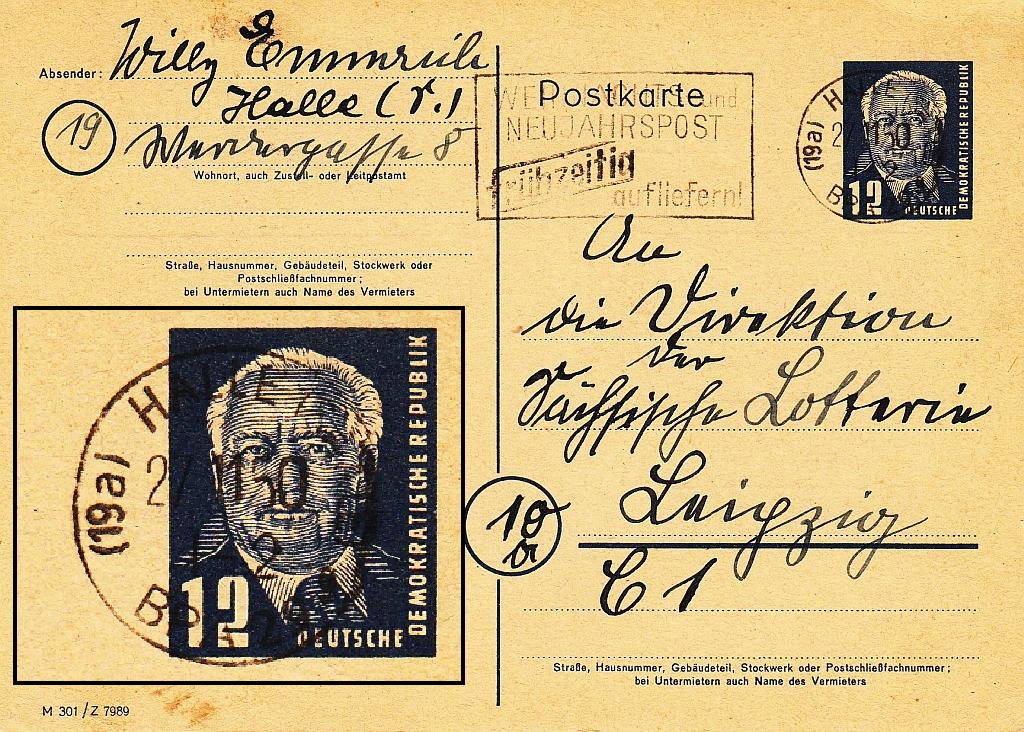 Absender: Willy Emmrich
Halle (S.)
19
Werdergasse 8
Wohnort, auch Zustell- oder Leitpostamt
Straße, Hausnummer, Gebäudeteil, Stockwerk oder
Postschließfachnummer;
bei Untermietern auch Name des Vermieters
Postkarte
WEIHNACHTS- und
NEUJAHRSPOST
frühzeitig
aufliefern!
(19a) HALLE
27.11.50
12
DEUTSCHE
DEMOKRATISCHE REPUBLIK
An
die Direktion
der
Sächsische Lotterie
10
Leipzig
C 1
Straße, Hausnummer, Gebäudeteil, Stockwerk oder Postschließfachnummer;
bei Untermietern auch Name des Vermieters
(19a) HALLE
27.11.50
12
DEUTSCHE
DEMOKRATISCHE REPUBLIK
M 301 / Z 7989